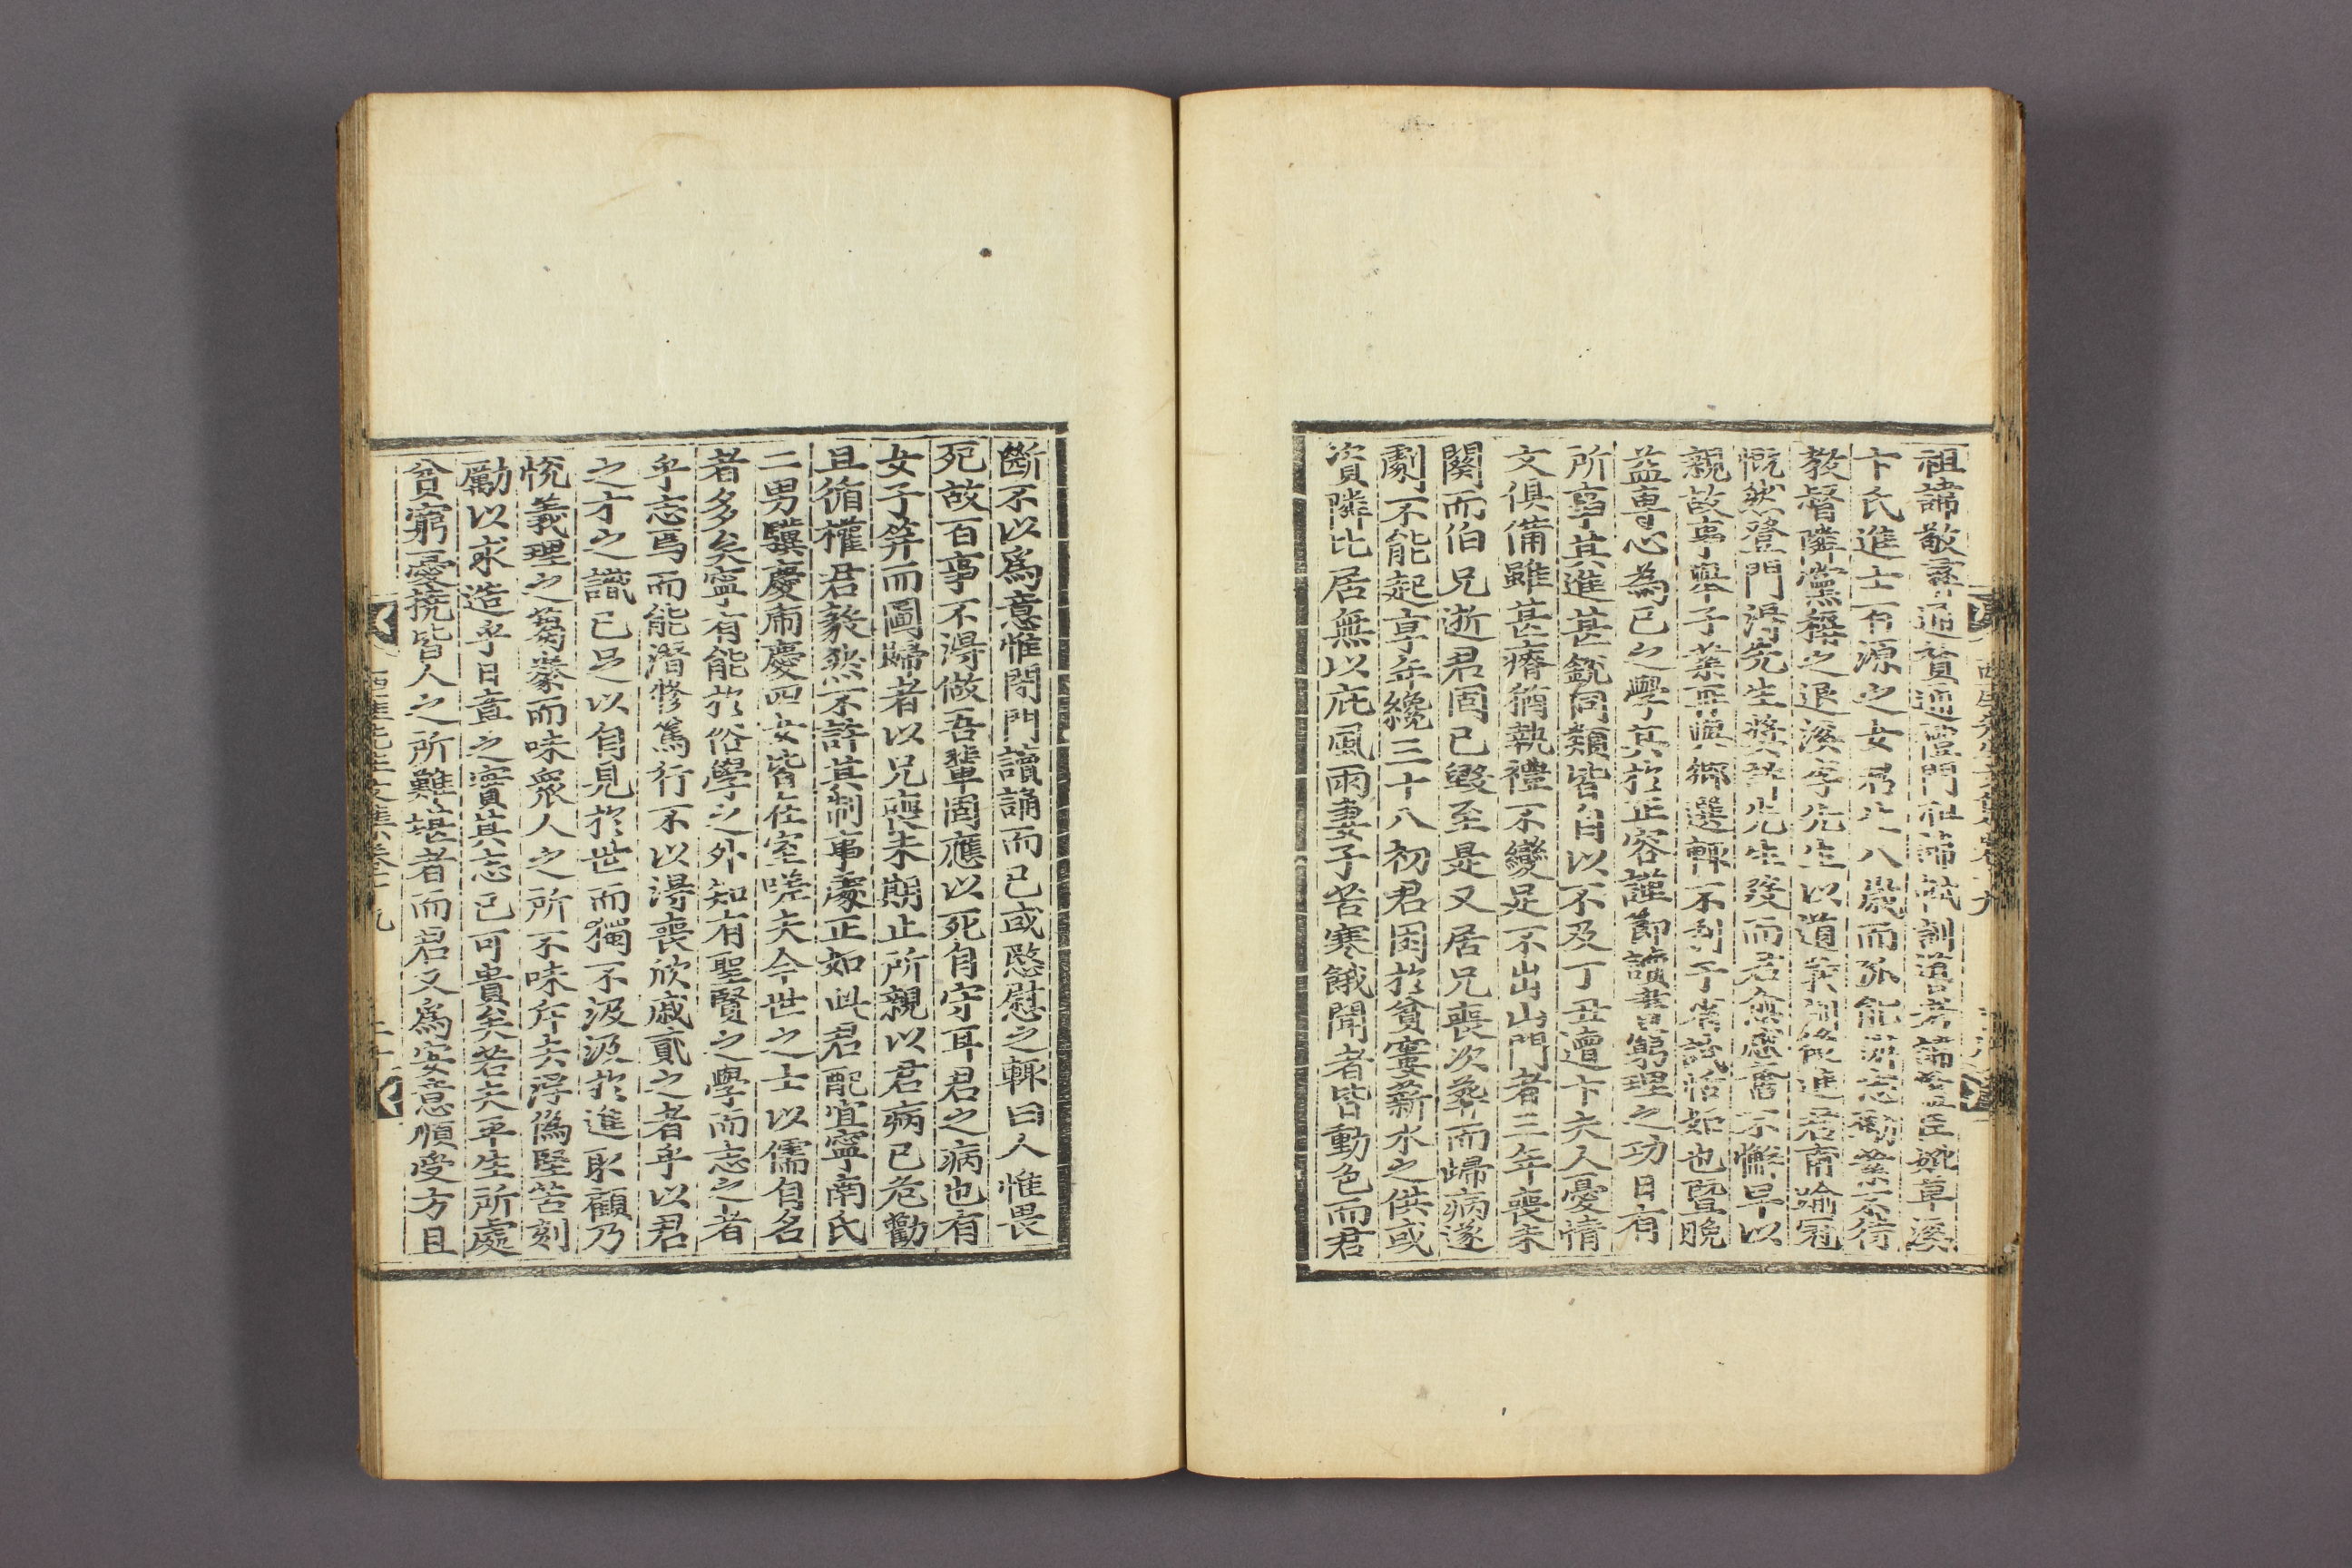 祖諱敬 通贊 門祖諱 訓 考諱 臣號草溪
卞氏進士百源之女君生八歲而孤能 志勤業不待
教督隣黨稱之退溪李先生以道義 後進君甫踰冠
慨然登門得先生奬許先生歿而君愈感奮不懈早以
親故事擧子業再與鄕選輒不利于省試恬如也暨晚
益專心為己之學其於正容謹節讀書窮理之功日有
所事其進甚銳同類皆自以不及丁丑遭卞夫人憂情
文俱備雖甚瘠猶執禮不變足不出山門者三年喪未
闋而伯兄逝君固已毁至是又居兄喪次葬而歸病遂
劇不能起享年纔三十八初君困於貧窶薪水之供或
資隣比居無以庇風雨妻子苦寒餓聞者皆動色而君
西厓先生文集卷十九
斷不以爲意惟閉門讀誦而已或愍慰之輒曰人惟畏
死故百事不得做吾輩固應以死自守耳君之病也有
女子笄而圖歸者以兄喪未期止所親以君病已危勸
且循權君毅然不許其制事處正如此君配宜寧南氏
二男驥慶 慶四女皆在室嗟夫今世之士以儒自名
者多矣寧有能於俗學之外知有聖賢之學而志之者
乎志焉而能潛修篤行不以得喪欣戚貳之者乎以君
之才之識已足以自見於世而獨不汲汲於進取顧乃
悅義理之蒭豢而味衆人之所不味斥去浮僞堅苦刻
勵以求造乎日章之實其志已可貴矣若夫平生所處
貧窮憂撓皆人之所難堪者而君又爲安意順受方且
西厓先生文集卷十九 二十